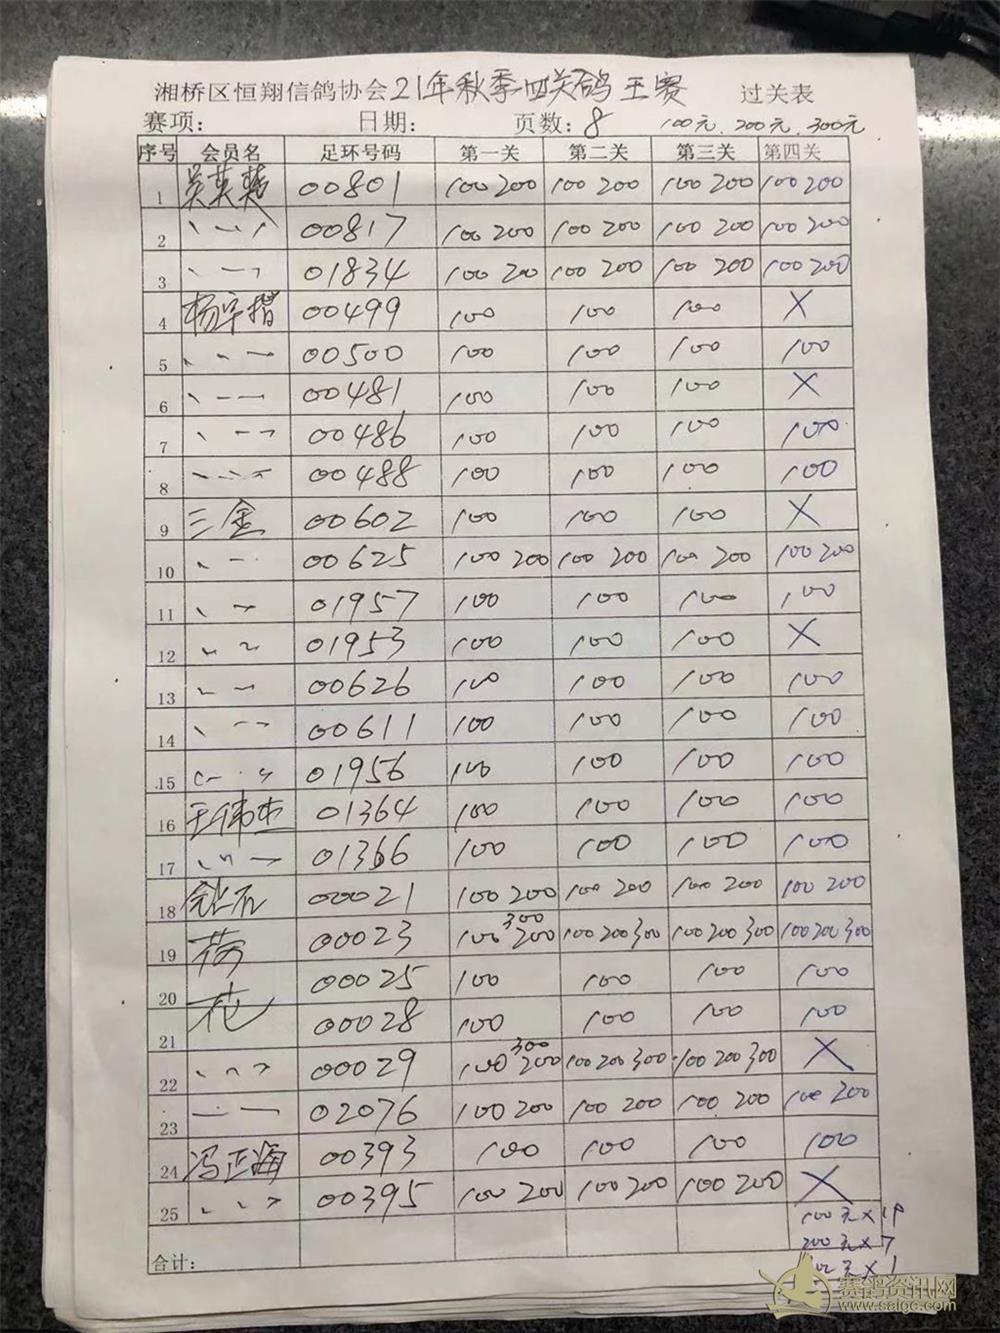 湘桥区恒翔信鸽协会21年秋季四关鸽王赛 过关表
赛项: 日期: 页数:8 100元.200元.300元
序号 会员名 足环号码 第一关 第二关 第三关 第四关
1 吴英楚 00801 100 200 100 200 100 200 100 200
2 、一 、 00817 100 200 100 200 100 200 100 200
3 、一 、 01834 100 200 100 200 100 200 100 200
4 00499 100 100 100 X
5 00500 100 100 100 100
6 00481 100 100 100 X
7 00486 100 100 100 100
8 00488 100 100 100 100
9 三金 00602 100 100 100 X
10 00625 100 200 100 200 100 200 100 200
11 01957 100 100 100 100
12 01953 100 100 100 X
13 00626 100 100 100 100
14 00611 100 100 100 100
15 01956 100 100 100 100
16 王伟杰 01364 100 100 100 100
17 01366 100 100 100 100
18 钻石 00021 100 200 100 200 100 200 100 200
19 荷 00023 100 200 300 100 200 300 100 200 300 100 200 300
20 00025 100 100 100 100
21 花 00028 100 100 100 100
22 00029 100 200 300 100 200 300 100 200 300 X
23 02076 100 200 100 200 100 200 100 200
24 冯正海 00393 100 100 100 100
25 00395 100 200 100 200 100 200 X
100元X19
200元X7
合计: 300元X1
赛鸽资讯网
www.saigc.com